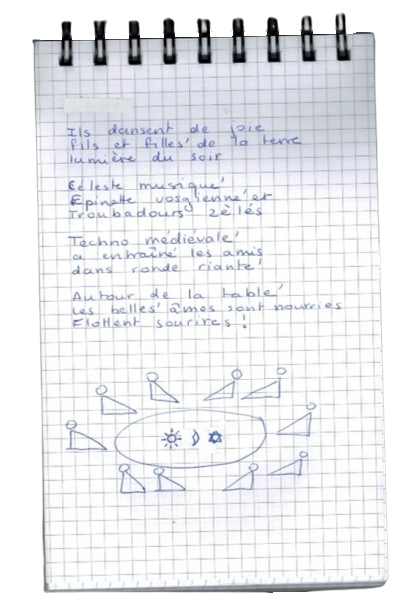 Ils dansent de joie
fils et filles de la terre
lumière du soir
Céleste musique
Epinette vosgienne et
Troubadours zèlés
Techno médiévale
a entraîné les amis
dans ronde riante
Autour de la table
Les belles âmes sont nourries
Flottent sourires !